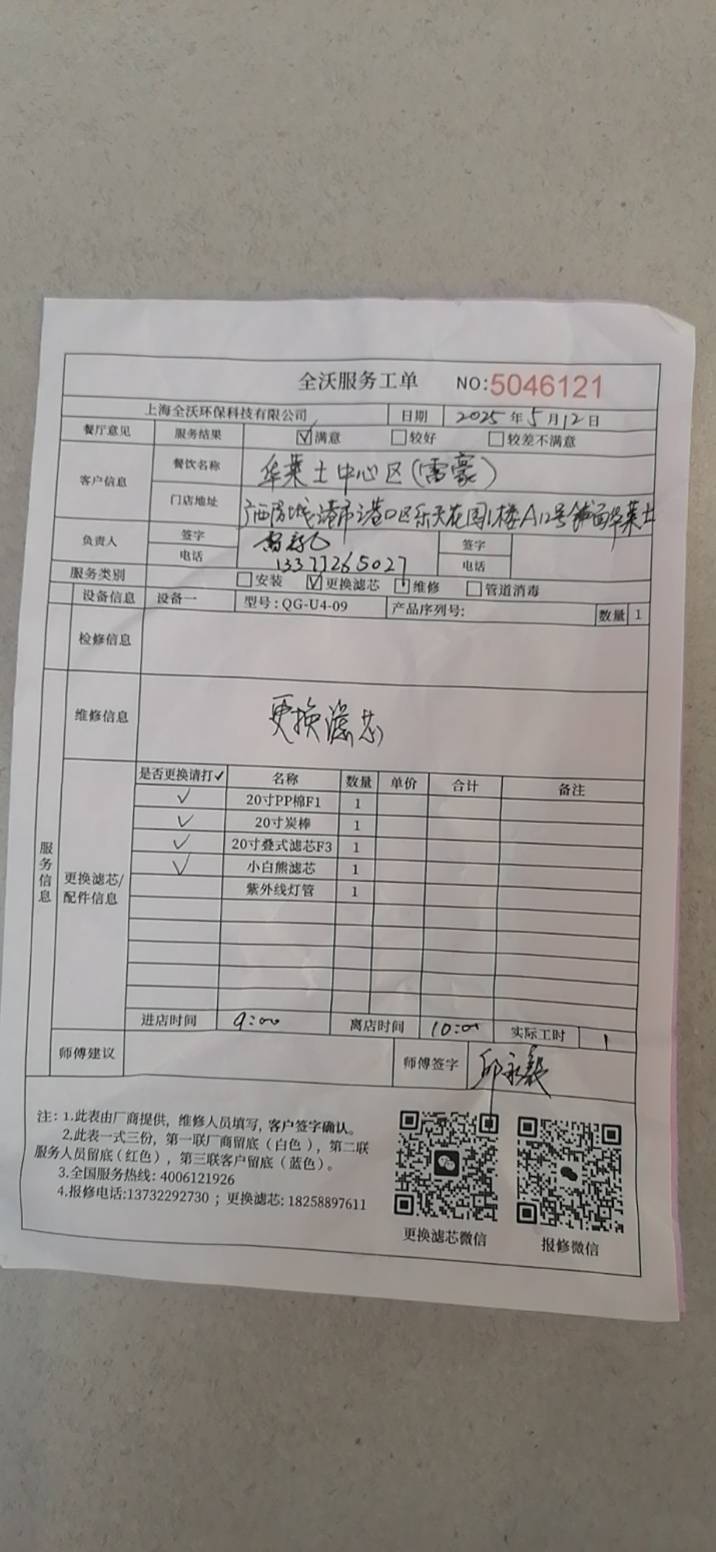 全沃服务工单 NO:5046121
上海全沃环保科技有限公司 日期 2025年5月12日
餐厅意见 服务结果 ☑满意 □较好 □较差不满意
客户信息 餐饮名称 华莱士中心区(雷豪)
门店地址 广西防城港市港口区乐天花园1楼A12号铺面华莱士
负责人 签字 签字
电话 13377265027 电话
服务类别 □安装 ☑更换滤芯 □维修 □管道消毒
设备信息 设备一 型号:QG-U4-09 产品序列号: 数量 1
检修信息
维修信息 更换滤芯
服务信息
更换滤芯/配件信息
是否更换请打✓ 名称 数量 单价 合计 备注
✓ 20寸PP棉F1 1
✓ 20寸炭棒 1
✓ 20寸叠式滤芯F3 1
✓ 小白熊滤芯 1
紫外线灯管 1
进店时间 9:00 离店时间 10:00 实际工时 1
师傅建议 师傅签字 邱永毅
注:1.此表由厂商提供,维修人员填写,客户签字确认。
2.此表一式三份,第一联厂商留底(白色),第二联
服务人员留底(红色),第三联客户留底(蓝色)。
3.全国服务热线: 4006121926
4.报修电话:13732292730 ;更换滤芯: 18258897611
更换滤芯微信 报修微信